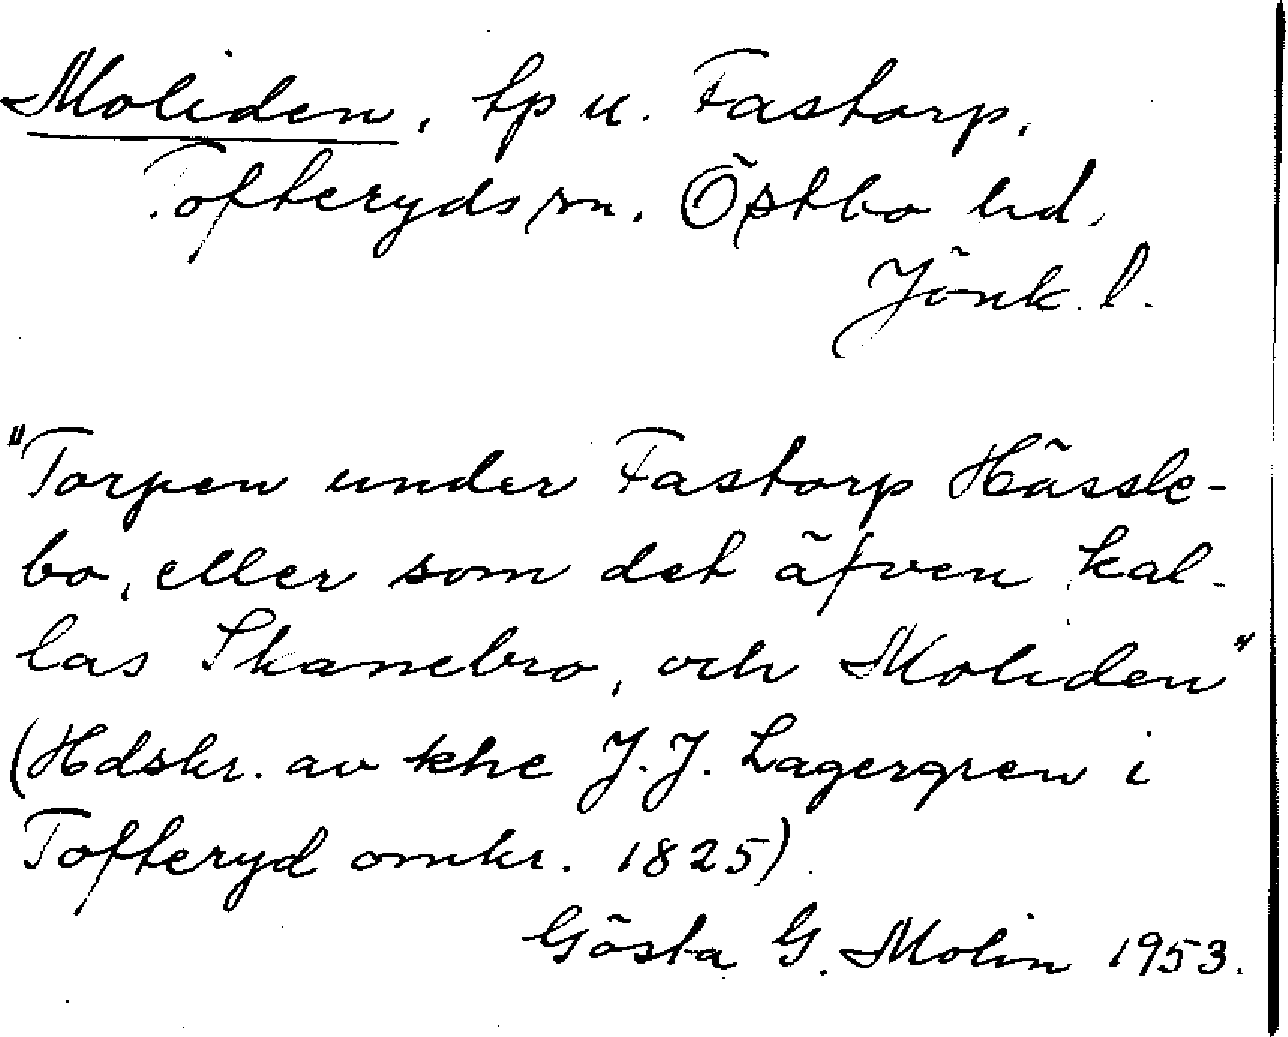 Moliden, tp u. Fastorp,
Tofteryds sn. Östbo hd,
Jönk. l.
"Torpen under Fastorp Hässle-
bo, eller som det äfven kal-
las Skanebro, och Moliden"
(Hdskr. av khe J. J. Lagergren i
Tofteryd omkr. 1825).
Gösta G. Molin 1953.